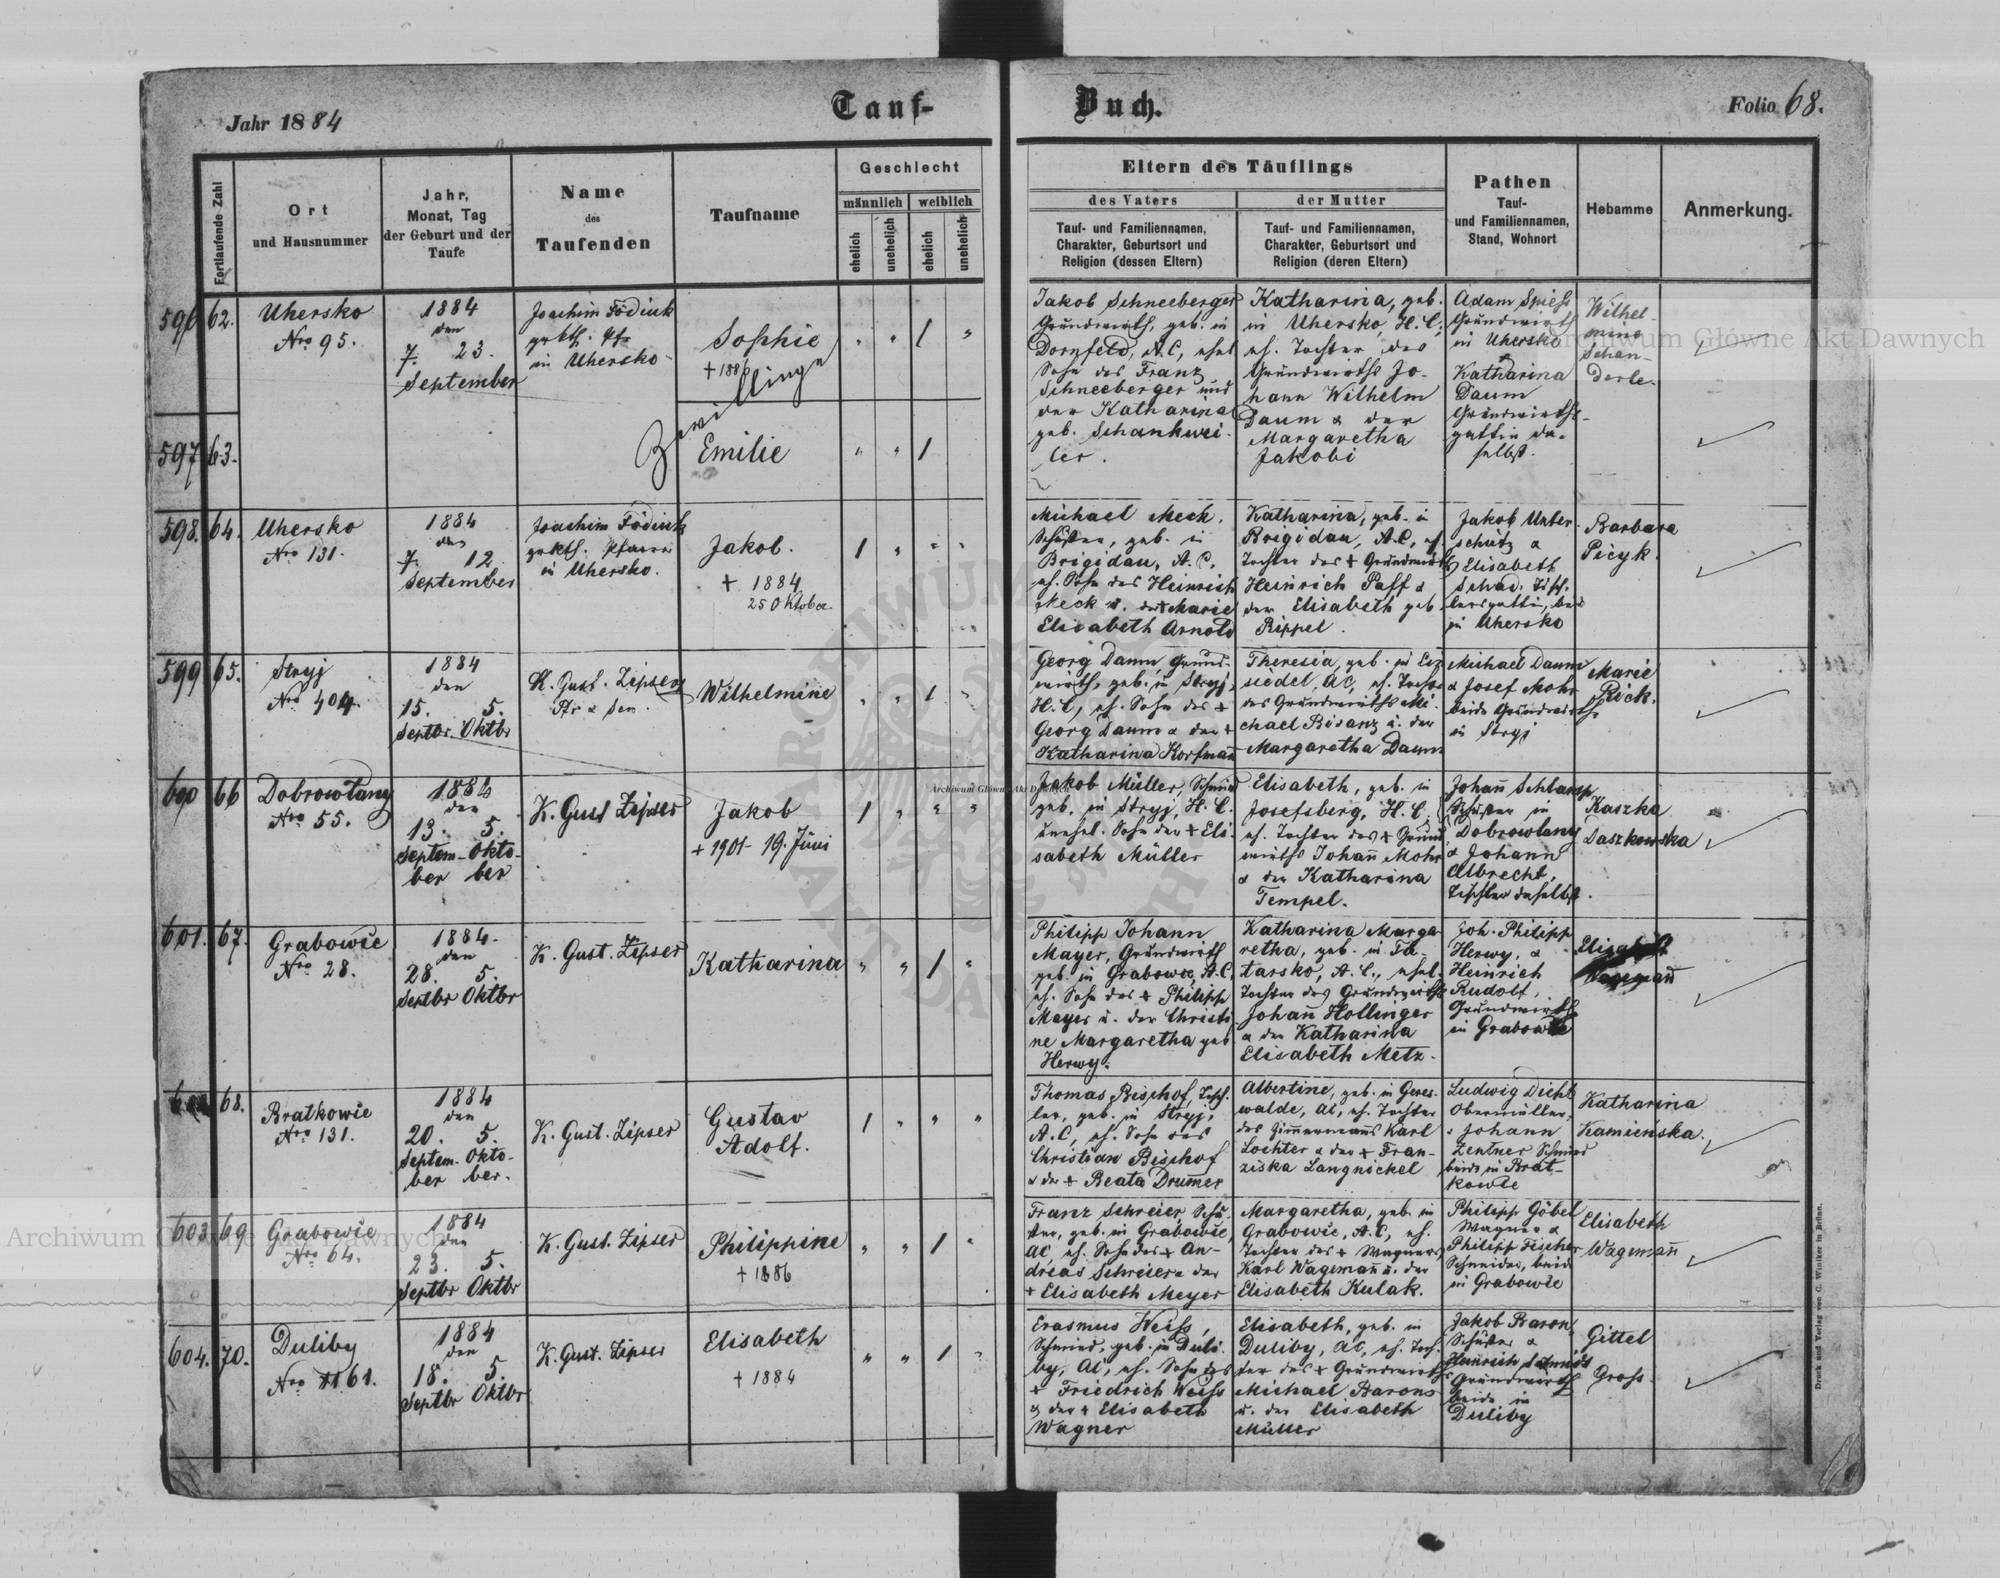 Jahr 1884
Tauf-
Buch.
Folio 68.
Fortlaufende Zahl
Ort
und Hausnummer
Jahr,
Monat, Tag
der Geburt und der
Taufe
Name
des
Taufenden
Taufname
Geschlecht
männlich
weiblich
ehelich
unehelich
ehelich
unehelich
Eltern des Täuflings
des Vaters
Tauf- und Familiennamen,
Charakter, Geburtsort und
Religion (dessen Eltern)
der Mutter
Tauf- und Familiennamen,
Charakter, Geburtsort und
Religion (deren Eltern)
Pathen
Tauf-
und Familiennamen,
Stand, Wohnort
Hebamme
Anmerkung.
596 62.
Uhersko
Nro 95.
1884
den
7. 23.
September
Joachim Födiuk
in Uhersko
Sophie
Zwillinge
Jakob Schneeberger
Grundwirth, geb. in
Dornfeld, A.C, ehel
Sohn des Franz
Schneeberger und
der Katharina
geb. Schankwei-
ler.
Katharina, geb.
in Uhersko, H.C.
eh. Tochter des
Grundwirths Jo-
hann Wilhelm
Daum & der
Margaretha
Jakobi
Adam Spiess
Grundwirth
in Uhersko
&
Katharina
Daum
Grundwirths-
gattin da-
selbst.
Wilhel-
mine
Schan-
derle.
597 63.
Emilie
598. 64.
Uhersko
Nro 131.
1884
den
7. 12.
September
Joachim Födiuk
grkth. Pfarrer
in Uhersko.
Jakob.
+ 1884
25 Oktober
Michael Meck,
Schuster, geb. in
Brigidau, A.C.
eh. Sohn des Heinrich
Meck u. der + Marie
Elisabeth Arnold
Katharina, geb. in
Brigidau, A.C, eh.
Tochter des + Grundwirths
Heinrich Paff &
der Elisabeth geb
Rippel.
Jakob Unter-
schütz &
Elisabeth
Schad, Tisch-
lersgattin, beide
in Uhersko
Barbara
Picyk.
599 65.
Stryj
Nro 404.
1884
den
15. 5.
Septbr. Oktbr
K. Gust. Zipser
Pfr & Sen.
Wilhelmine
Georg Daum, Grund-
wirth, geb. in Stryj,
H.C, eh. Sohn des +
Georg Daum & der +
Katharina Korfmañ
Theresia, geb. in Ein-
siedel, AC, eh. Tochter
des Grundwirths Mi-
chael Bisanz u. der
Margaretha Daum
Michael Daum
& Josef Mohr
beide Grundwirthe
in Stryj
Marie
Rick.
600 66
Dobrowlany
Nro 55.
1884
den
13. 5.
Septem- Okto-
ber ber
K. Gust Zipser
Jakob
+ 1901 19. Juni
Jakob Müller, Schmied
geb. in Stryj, H.C.
unehel. Sohn der + Eli-
sabeth Müller
Elisabeth, geb. in
Josefsberg, H.C.
eh. Tochter des + Grund-
wirths Johañ Mohr
& der Katharina
Tempel.
Johañ Schlamp
Schuster in
Dobrowlany
& Johann
Albrecht,
Tischler daselbst.
Kaszka
Daszkowska
601. 67.
Grabowce
Nro 28.
1884.
den
28. 5.
Septbr Oktbr
K. Gust. Zipser
Katharina
Philipp Johann
Mayer, Grundwirth
geb. in Grabowce, A.C.
eh. Sohn des + Philipp
Mayer u. der Christi-
ne Margaretha geb
Herwy.
Katharina Marga-
retha, geb. in Ta-
tarsko, A.C., ehel.
Tochter des Grundwirths
Johañ Hollinger
& der Katharina
Elisabeth Metz.
Joh. Philipp
Herwy, &
Heinrich
Rudolf,
Grundwirth
in Grabowce
Elisabeth
Wagemañ
68.
Bratkowce
Nro 131.
1884
den
20. 5.
Septem- Okto-
ber ber.
K. Gust. Zipser
Gustav
Adolf.
Thomas Bischof, Tisch-
ler, geb. in Stryj,
A.C, eh. Sohn des
Christian Bischof
& der + Beata Drumer
Albertine, geb. in Geres-
walde, AC, eh. Tochter
des Zimmermanns Karl
Lochter & der + Fran-
ziska Langnickel
Ludwig Diehl
Obermüller,
& Johann
Zentner Schmied
beide in Brat-
kowce
Katharina
Kamieńska.
603. 69
Grabowce
Nro 64.
1884
den
23. 5.
Septbr Oktbr
K. Gust. Zipser
Philippine
+ 1886
Franz Schreier, Schu-
ster, geb. in Grabowce,
AC, eh. Sohn des + An-
dreas Schreier & der
+ Elisabeth Meyer
Margaretha, geb. in
Grabowce, A.C, eh.
Tochter des + Wagners
Karl Wagemañ u. der
Elisabeth Kulak.
Philipp Göbel
Wagner &
Philipp Fischer
Schneider, beide
in Grabowce
Elisabeth
Wagemañ
604. 70.
Duliby
Nro 61.
1884
den
18. 5.
Septbr Oktbr
K. Gust. Zipser
Elisabeth
+ 1884
Erasmus Weiss,
Schmied, geb. in Duli-
by, AC, eh. Sohn des
+ Friedrich Weiss
& der + Elisabeth
Wagner
Elisabeth, geb. in
Duliby, AC, eh. Toch-
ter des + Grundwirths
Michael Barons
u. der Elisabeth
Müller
Jakob Baron,
Schuster &
Heinrich Schmidt
Grundwirth
beide in
Duliby
Gittel
Gross.
Druck und Verlag von C. Winiker in Brünn.
Archiwum Główne Akt Dawnych
Archiwum Główne Akt Dawnych
Archiwum Główne Akt Dawnych